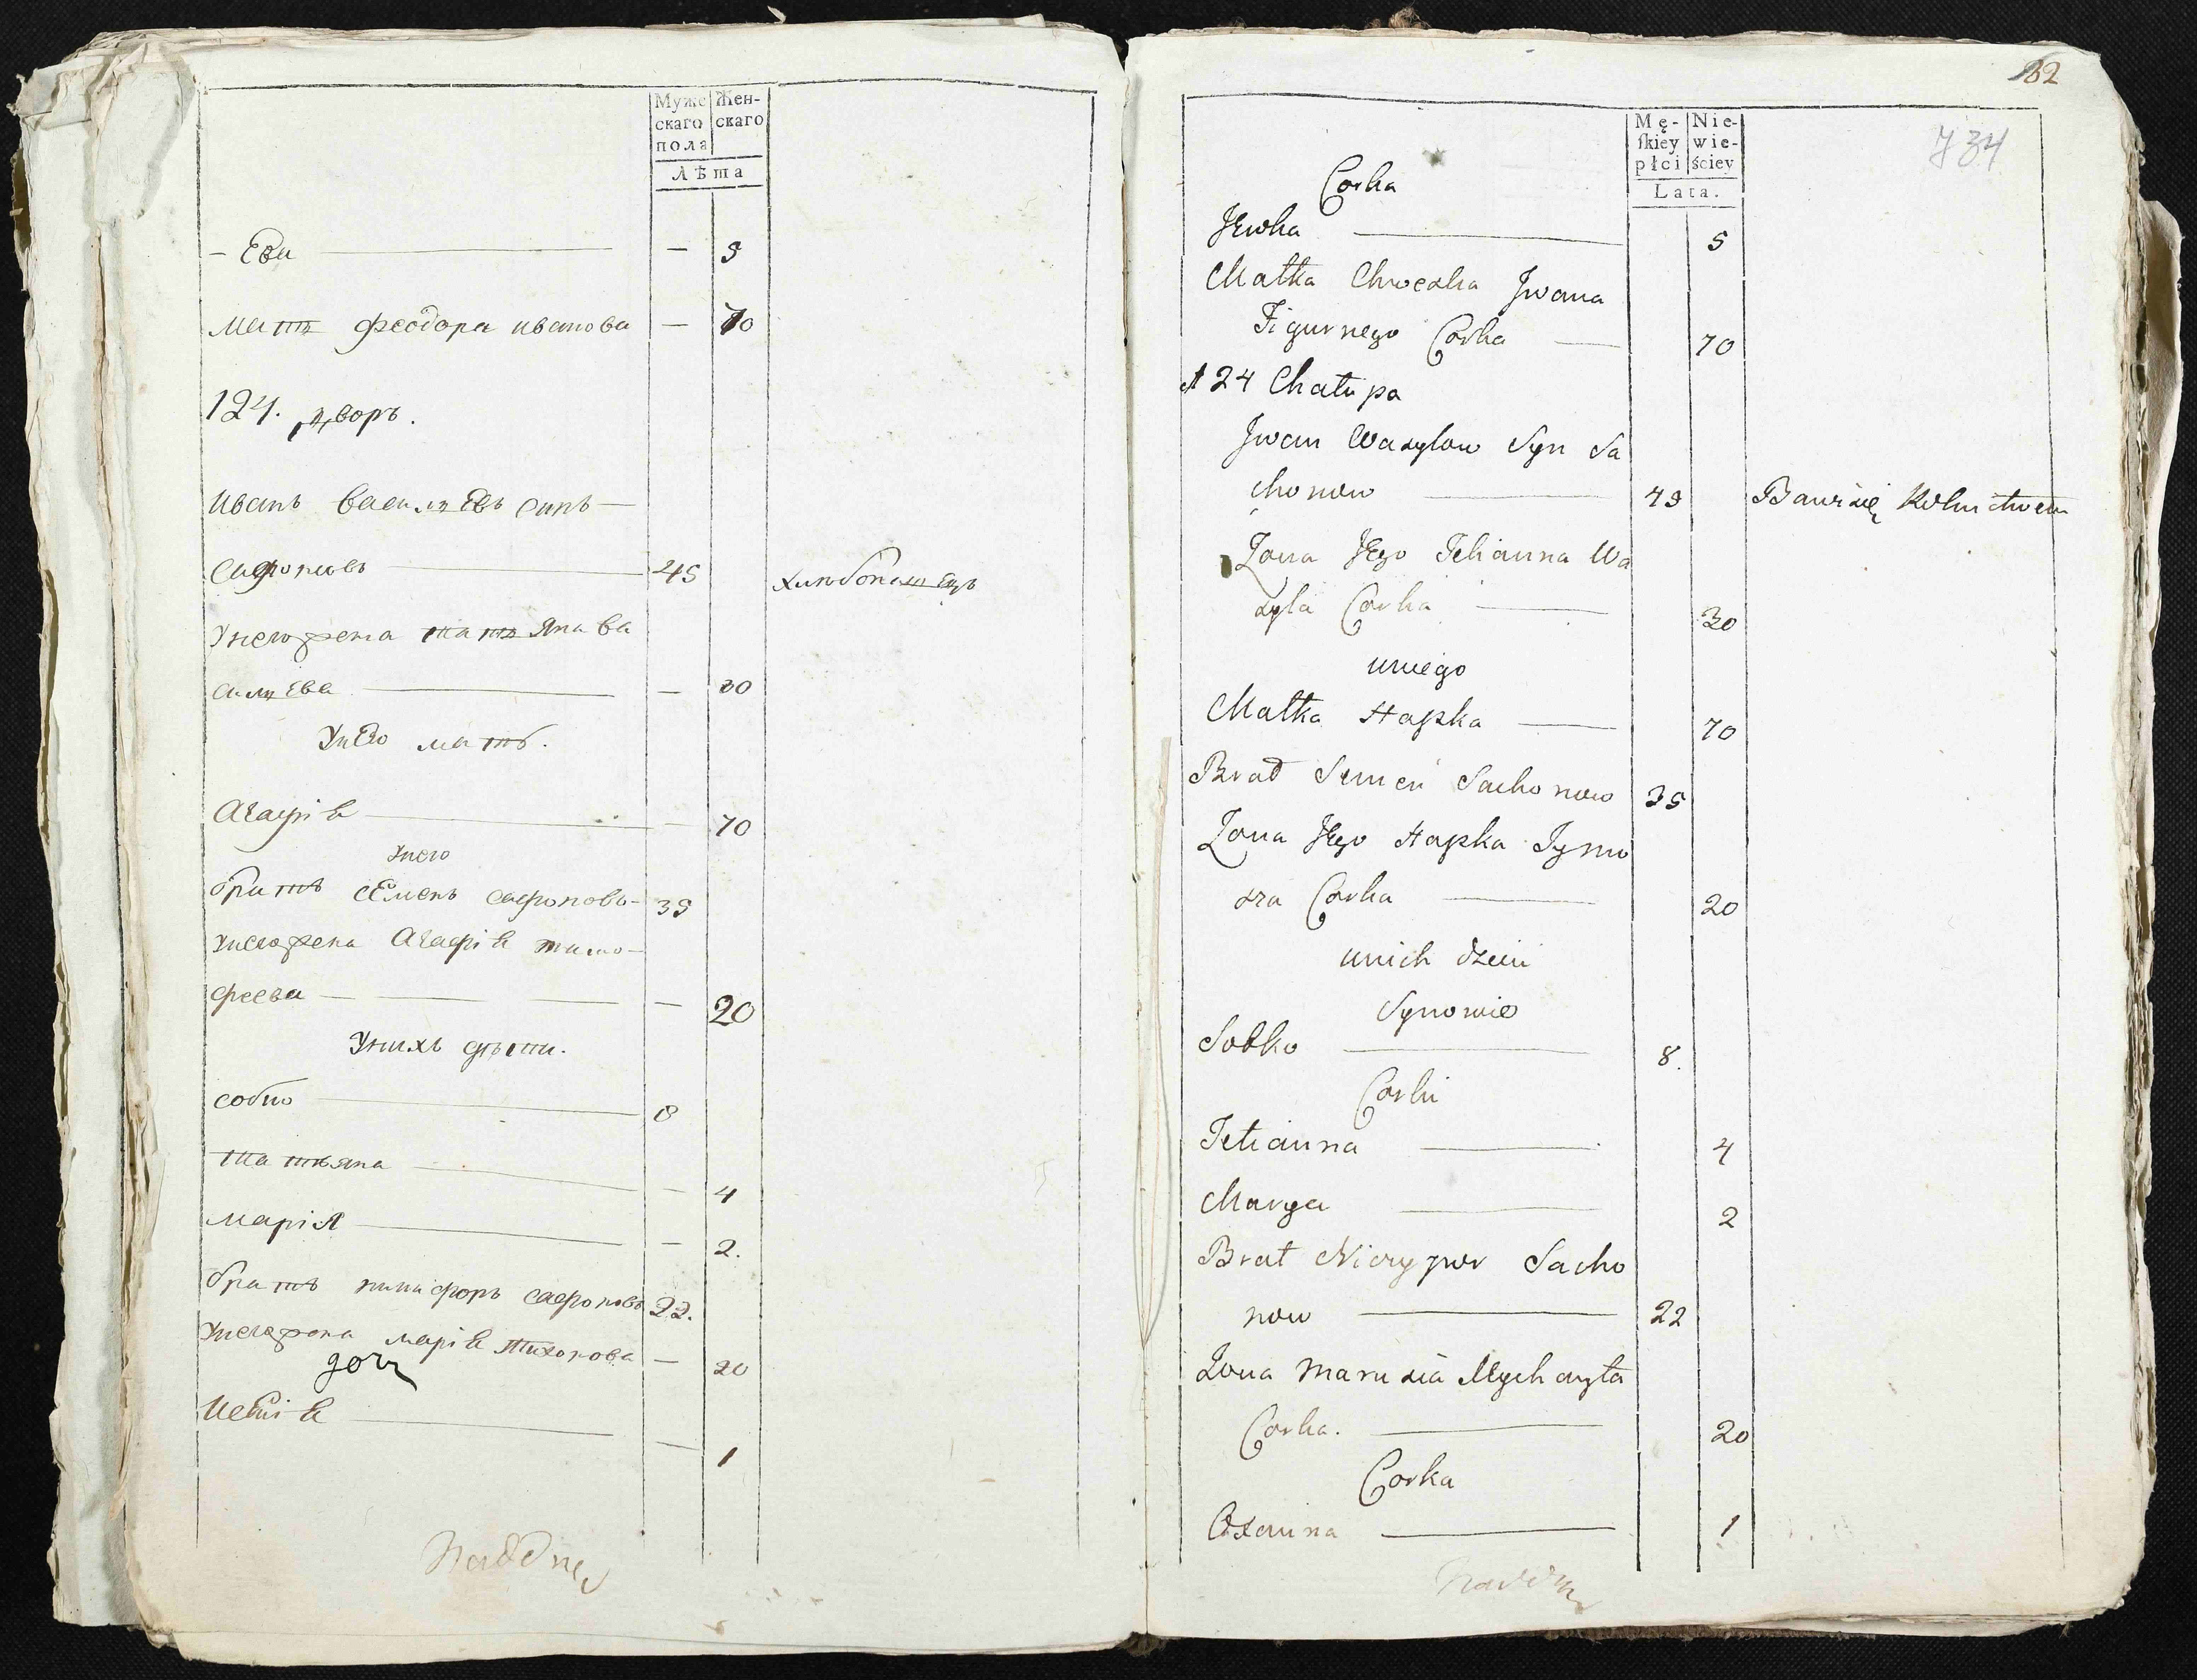 Муже Жен-
скаго скаго
пола
Лѣта
- Ева — 5
мать феодора иванова — 70
124. дворъ.
иванъ васильевъ сынъ
сафоновъ 45 хлѣбопашецъ
Унего жена татьяна ва
сильева — 30
Унего мать.
Агафія — 70
Унего
братъ семенъ сафоновъ 35
Унего жена Агафія тимо-
феева — 20
Унихъ дѣти.
собко 8
татьяна — 4
марія — 2.
братъ никифоръ сафоновъ 22.
Унего жена марія тихонова — 20
дочь
— 1
82
734
Mę- Nie-
skiey wie-
płci ściey
Lata.
Corka
JEwka 5
Matka Chweska Jwana
Figurnego Corka 70
124 Chałupa
Jwan Wasylow Syn Sa
chonow 45 Bawi się Rolnictwem
Żona JEgo Tetianna Wa
syla Corka 30
uniego
Matka Hapka 70
Brat Semen Sachonow 35
Żona JEgo Hapka Tymo
sza Corka 20
unich dzieci
Synowie
Sobko 8.
Corki
Tetianna 4
Marya 2
Brat Niczypor Sacho
now 22
Żona Marusia Mychayła
Corka. 20
Corka
Oxanna 1